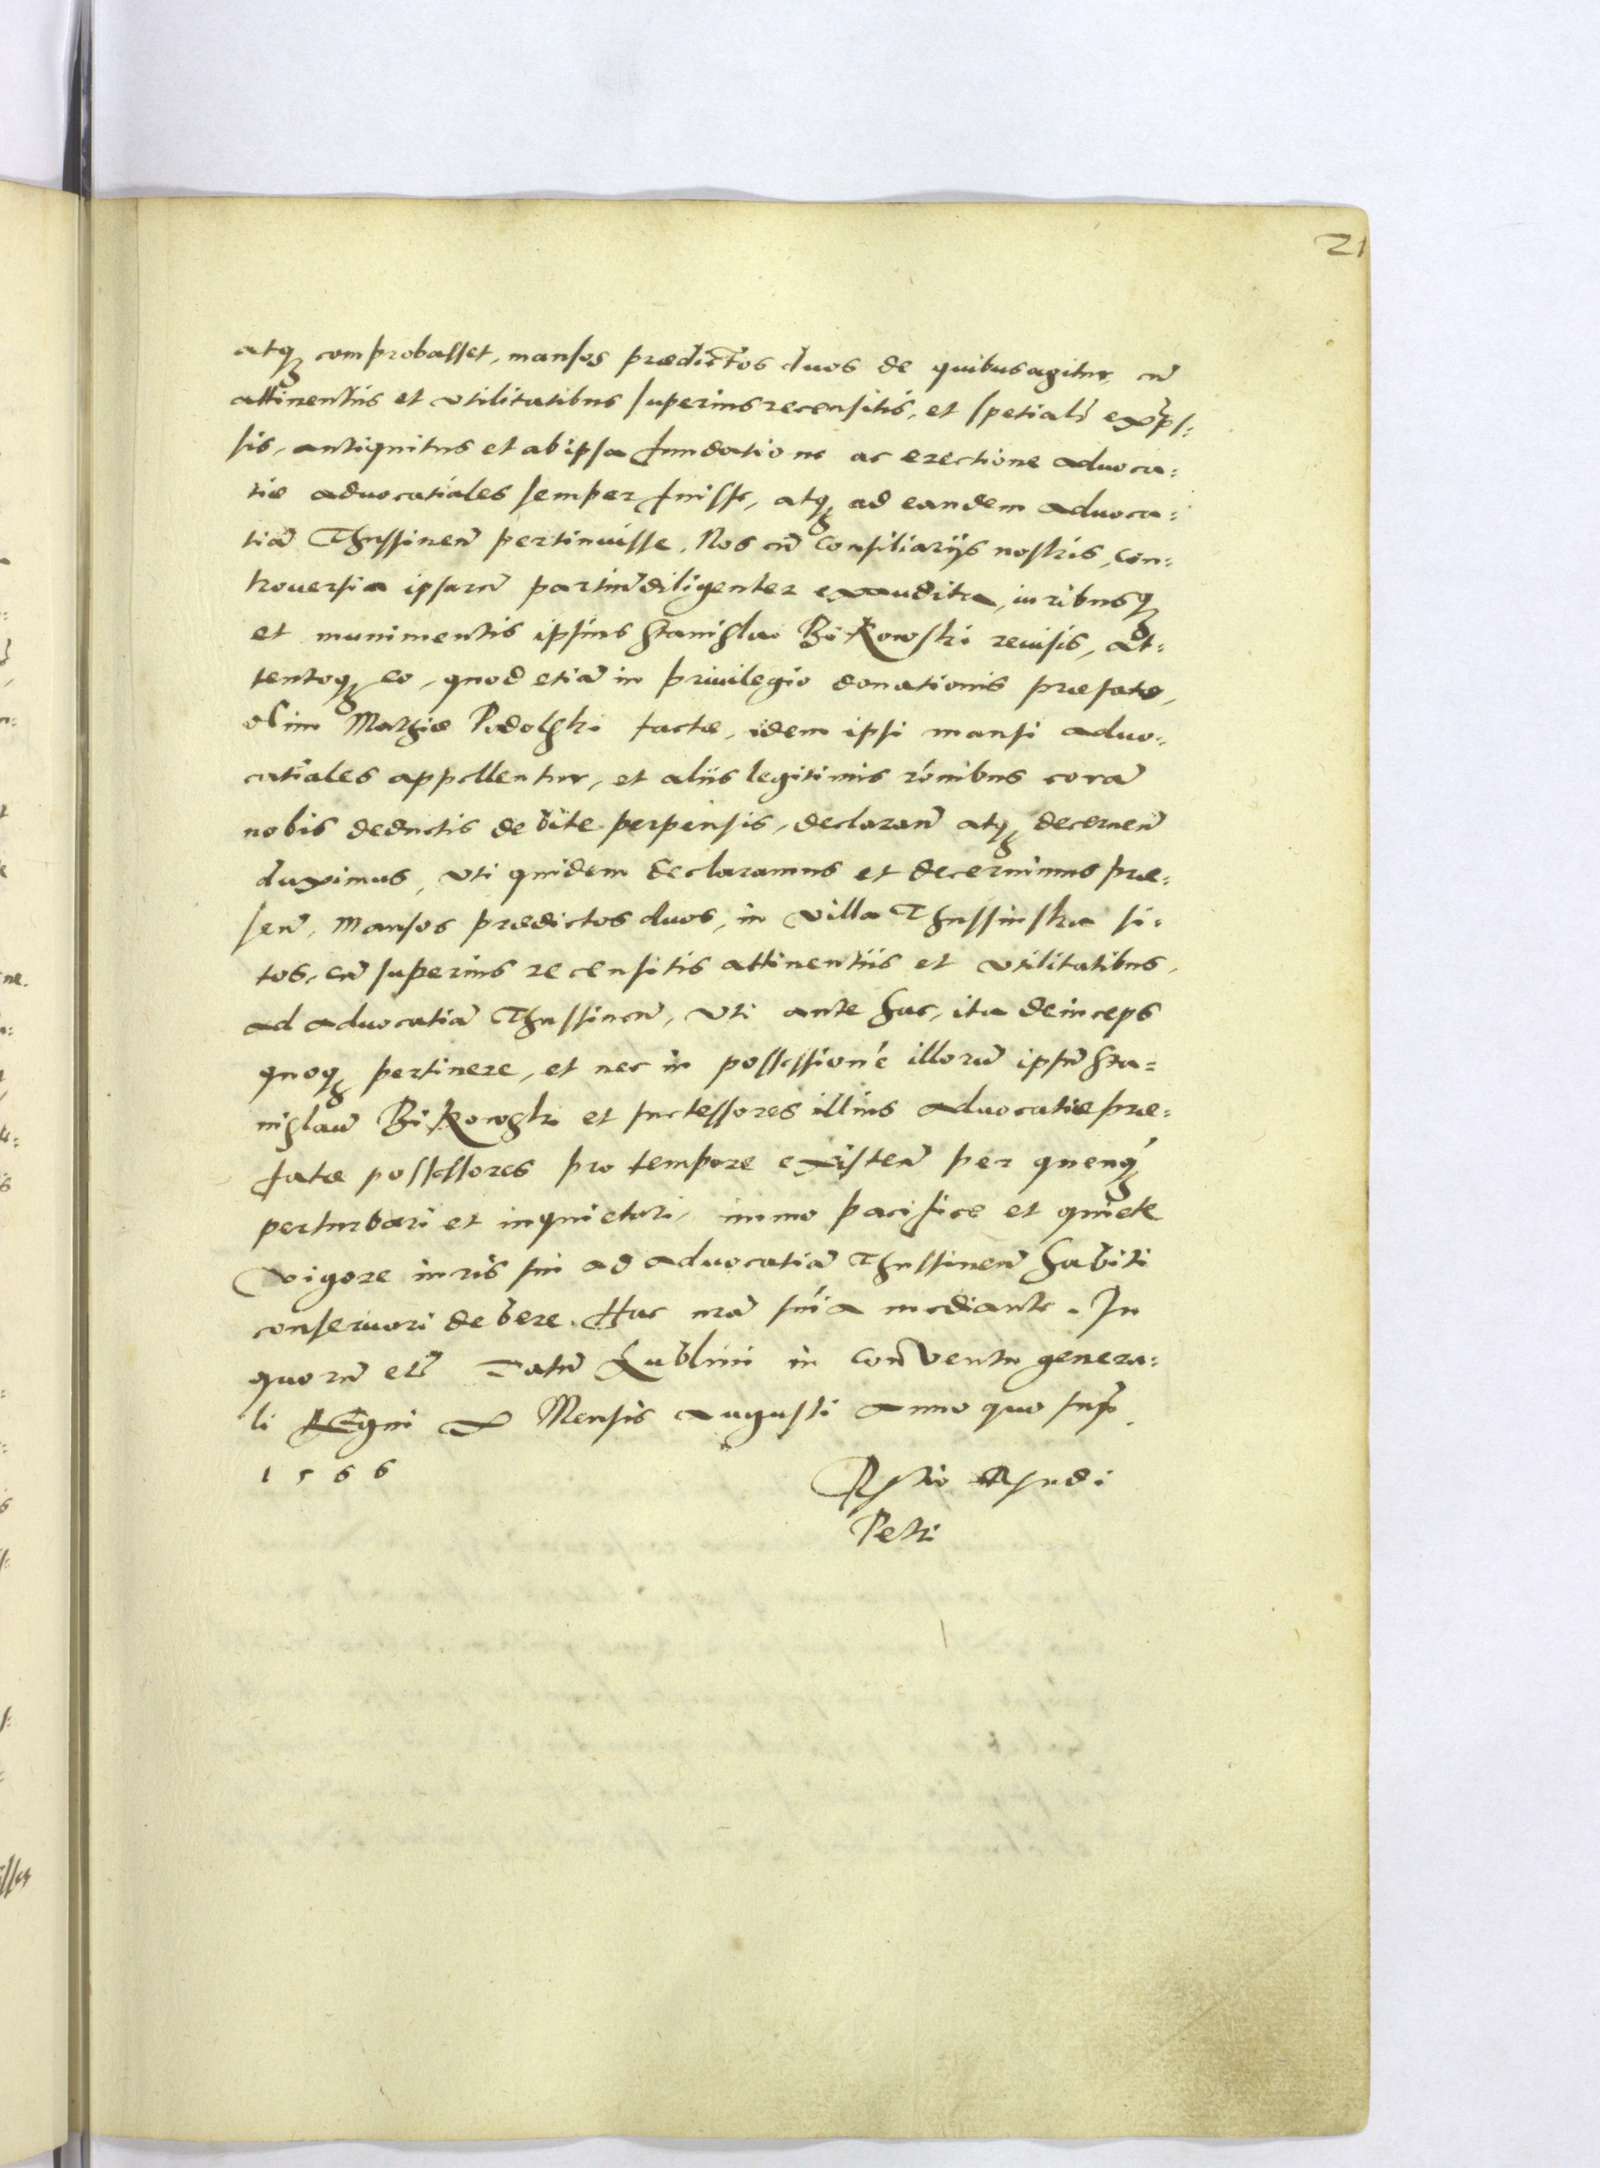 21
atq₃ comprobasset, mansos prædictos duos de quibus agitur, cū
attinentiis et vtilitatibus superius recensitis, et spetialr̄ expŝ:
sis, antiquitus et ab ipsa fundatione ac erectione aduoca:
tiæ aduocatiales semper fuisse, atq₃ ad eandem aduoca:
tiā Thussineñ pertinuisse. Nos cū consiliarijs nostris, con:
trouersia ipsarū partiū diligenter exaudita, iuribusq₃
et munimentis ipsius Stanislai Bikowski reuisis, at:
tentoq₃ eo, quod etiā in priuilegio donationis præfatæ,
olim Podolski factæ, idem ipsi mansi aduo:
catiales appellentur, et aliis legitimis rōnibus corā
nobis deductis debite perpensis, declarañ atq₃ decerneñ
duximus, vti quidem declaramus et decernimus præ:
señ, mansos prædictos duos, in villa Thussinska si:
tos, cū superius recensitis attinentiis et vtilitatibus,
ad aduocatiā Thussineñ, vti ante hac, ita deinceps
quoq₃ pertinere, et nec in possessionē illorū ipsū Sta:
nislaū Bikowski et successores illius aduocatiæ præ:
fatæ possessores pro tempore existeñ per quenq₃
perturbari et inquietari, immo pacifice et quiete
vigore iuris sui ad aduocatiā Thussineñ habiti
conseruari debere. Hac nrā snīa mediante. In
quorū etc̄ Datū Lublini in conventu genera:
li Regni X Mensis Augusti Anno quo supr̄.
1566
Rꝉtio Rsndi
Petri